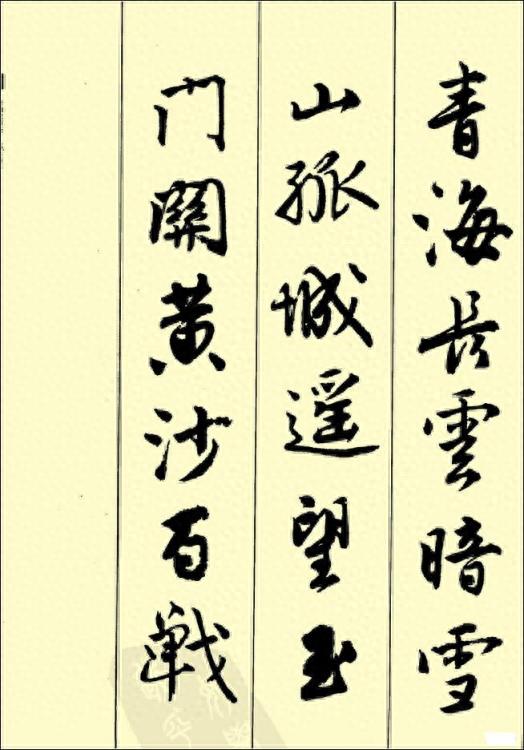 青海长雲暗雪
山孤城遥望玉
门關黄沙百戰